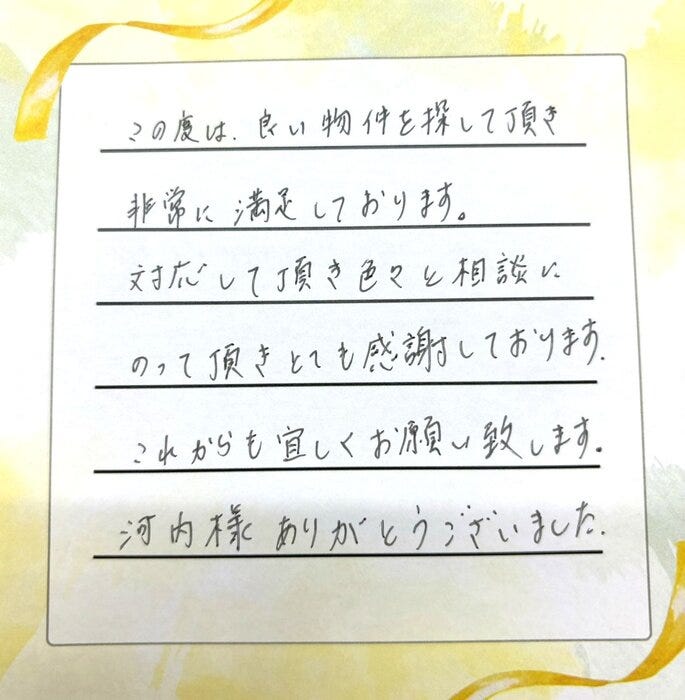 この度は、良い物件を探して頂き
非常に満足しております。
対応して頂き色々と相談に
のって頂きとても感謝しております.
これからも宜しくお願い致します。
河内様 ありがとうございました.